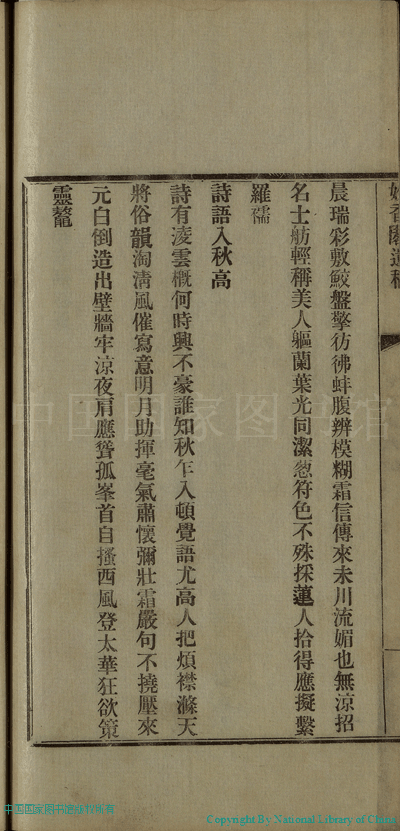 晨瑞彩敷鮫盤擎彷彿蚌腹辨模糊霜信傳來未川流媚也無涼招
名士舫輕稱美人軀蘭葉光同潔蔥符色不殊採蓮人拾得應擬繫
羅襦
詩語入秋高
詩有淩雲概何時興不豪誰知秋乍入頓覺語尤高人把煩襟滌天
將俗韻淘淸風催寫意明月助揮毫氣肅懷彌壯霜嚴句不撓壓來
元白倒造出壁牆牢涼夜肩應聳孤峯首自搔西風登太華狂欲策
靈鼇
中国国家图书馆
中国国家图书馆版权所有
Copyright By National Library of China